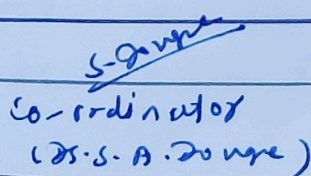 S. Dongre
Co-ordinator
(Dr. S. A. Dongre)